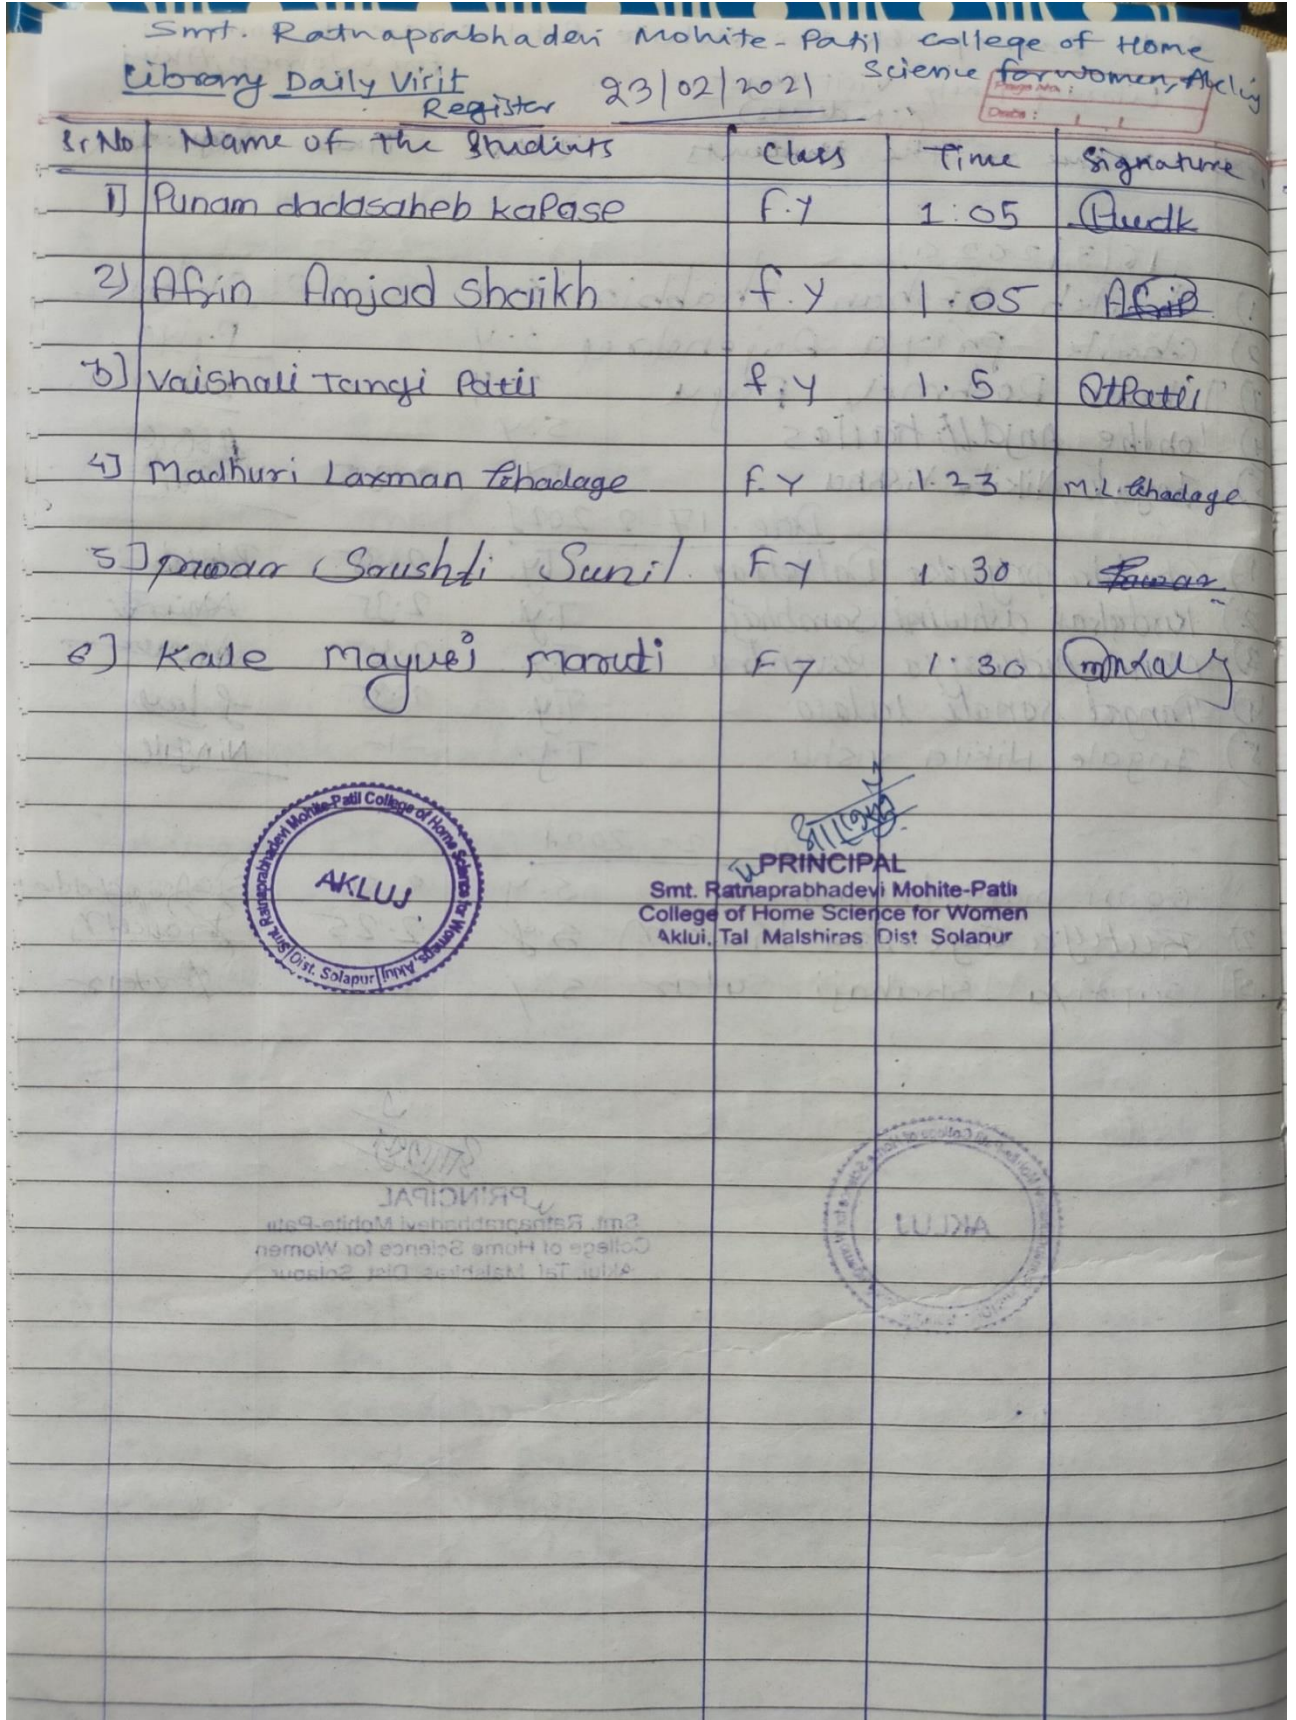 Smt. Ratnaprabhadevi Mohite-Patil College of Home
Science for women, Akluj
Library Daily Visit
Register 23/02/2021
Page No :
Date : / /
Sr No Name of the Students Class Time Signature
1] Punam dadasaheb kapase F.Y 1:05
2) Afrin Amjad Shaikh f.y 1.05 Afrin
3] Vaishali Tangi Patil f.y 1.5 Patil
4] Madhuri Laxman Ghadage F.Y 1.23 M.L. Ghadage
5] pawar Srushti Sunil F Y 1 30 Pawar
6] Kale Mayuri Maruti F Y 1:30
Smt. Ratnaprabhadevi Mohite-Patil College of Home Science for Womens, Akluj
Dist. Solapur
AKLUJ
PRINCIPAL
Smt. Ratnaprabhadevi Mohite-Patil
College of Home Science for Women
Akluj, Tal Malshiras Dist Solapur